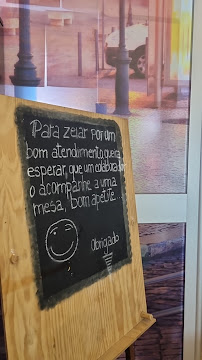 Para zelar por um
bom atendimento, queira
esperar que um colaborador
o acompanhe a uma
mesa, bom apetite
Obrigado